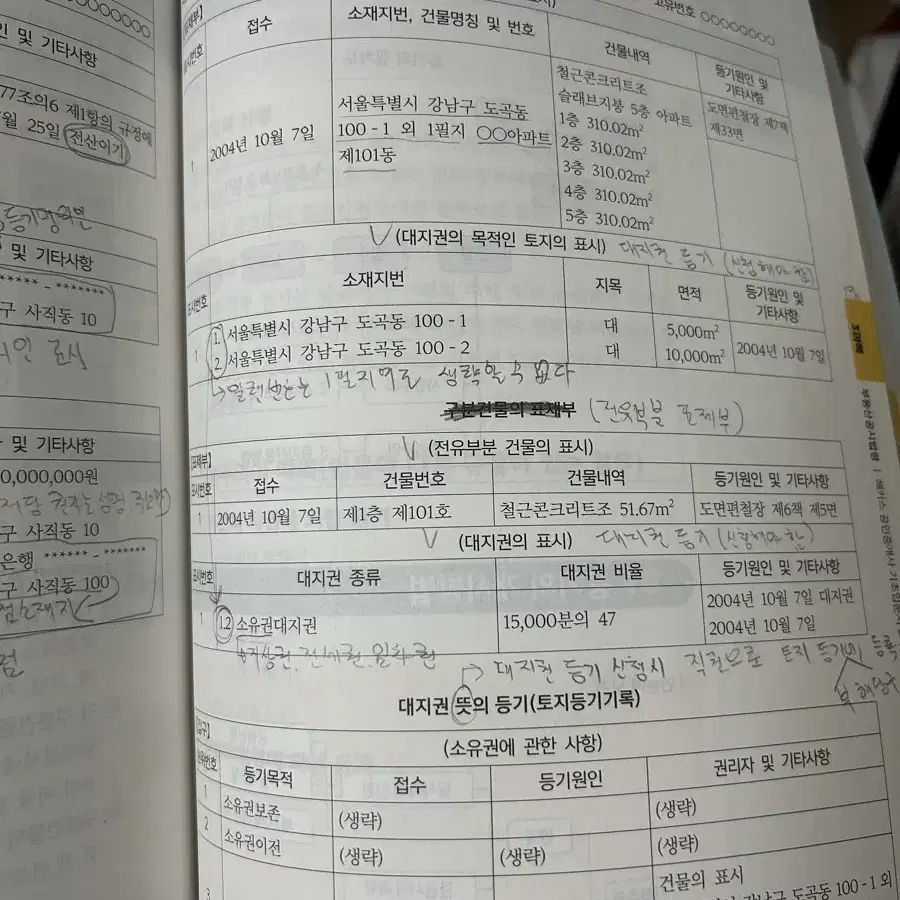 ○○○○○○
인 및 기타사항
77조의6 제1항의 규정에
월 25일 전산이기
및 기타사항
****** - *******
구 사직동 10
표시
및 기타사항
0,000,000원
구 사직동 10
은행 ****** - *******
구 사직동 100
고유번호 ○○○○○○○○
접수
소재지번, 건물명칭 및 번호
건물내역
등기원인 및
기타사항
1
2004년 10월 7일
서울특별시 강남구 도곡동
100 - 1 외 1필지 ○○아파트
제101동
철근콘크리트조
슬래브지붕 5층 아파트
1층 310.02m²
2층 310.02m²
3층 310.02m²
4층 310.02m²
5층 310.02m²
도면편철장 제7책
제33면
(대지권의 목적인 토지의 표시) 대지권 등기 (신청해야 함)
표시번호
소재지번
지목
면적
등기원인 및
기타사항
1
1. 서울특별시 강남구 도곡동 100 - 1
2. 서울특별시 강남구 도곡동 100 - 2
대
대
5,000m²
10,000m²
2004년 10월 7일
→ 일련번호는 1필지여도 생략할 수 없다
구분건물의 표제부 (전유부분 표제부)
[표제부]
(전유부분 건물의 표시)
표시번호
접수
건물번호
건물내역
등기원인 및 기타사항
1
2004년 10월 7일
제1층 제101호
철근콘크리트조 51.67m²
도면편철장 제6책 제5면
(대지권의 표시) 대지권 등기 (신청해야 함)
표시번호
대지권 종류
대지권 비율
등기원인 및 기타사항
1
1.2 소유권대지권
15,000분의 47
2004년 10월 7일 대지권
2004년 10월 7일
지상권, 전세권, 임차권
→ 대지권 등기 신청시 직권으로 토지 등기
대지권 뜻의 등기(토지등기기록)
[갑구]
(소유권에 관한 사항)
순위번호
등기목적
접수
등기원인
권리자 및 기타사항
1
소유권보존
(생략)
(생략)
2
소유권이전
(생략)
(생략)
(생략)
3
건물의 표시
강남구 도곡동 100 - 1 외
3과목
부동산공시법령